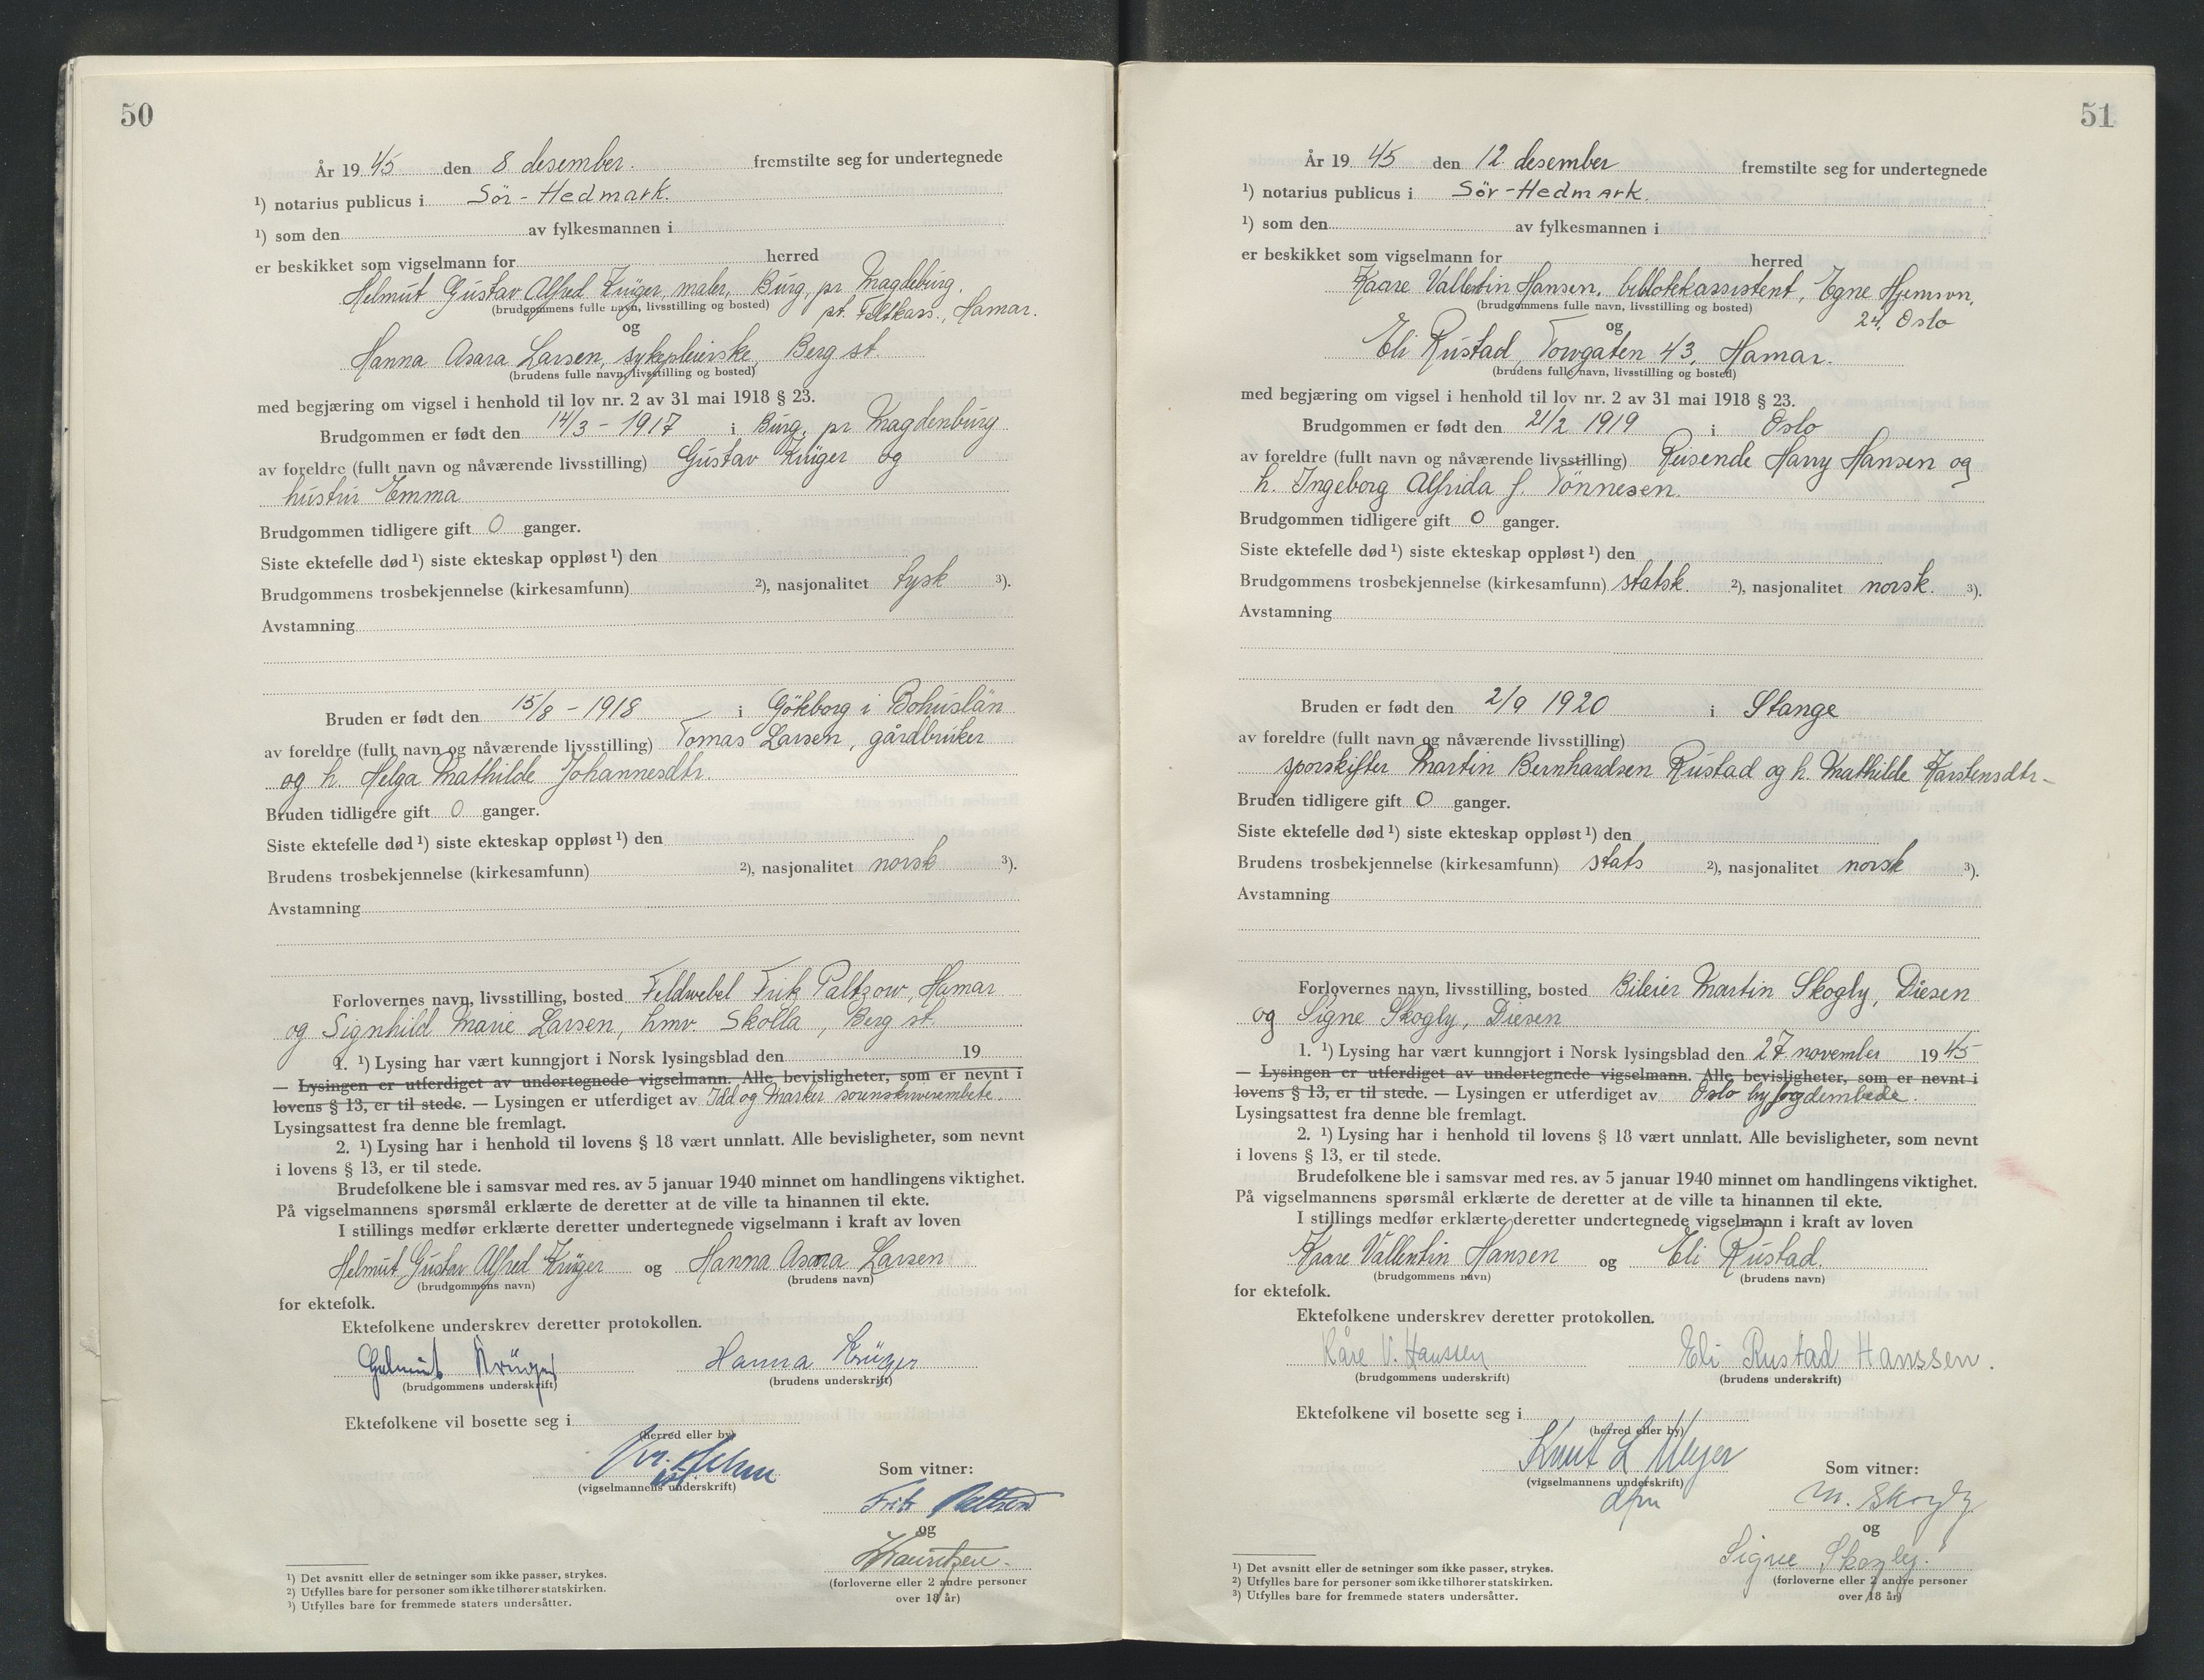 50
År 1945 den 8. desember. fremstilte seg for undertegnede
¹) notarius publicus i Sör-Hedmark.
¹) som den av fylkesmannen i
er beskikket som vigselmann for herred
Helmut Gustav Alfred Krüger, maler, Burg, pr Magdeburg.
(brudgommens fulle navn, livsstilling og bosted) pt. Feltkass., Hamar.
og
Hanna Asara Larsen, sykepleierske, Berg st.
(brudens fulle navn, livsstilling og bosted)
med begjæring om vigsel i henhold til lov nr. 2 av 31 mai 1918 § 23.
Brudgommen er født den 14/3 - 1917 i Burg, pr Magdenburg
av foreldre (fullt navn og nåværende livsstilling) Gustav Krüger og
hustru Emma
Brudgommen tidligere gift 0 ganger.
Siste ektefelle død ¹) siste ekteskap oppløst ¹) den
Brudgommens trosbekjennelse (kirkesamfunn) ²), nasjonalitet tysk ³).
Avstamning
Bruden er født den 15/8 - 1918 i Göteborg i Bohuslän
av foreldre (fullt navn og nåværende livsstilling) Tomas Larsen, gårdbruker
og h. Helga Mathilde Johannesdtr.
Bruden tidligere gift 0 ganger.
Siste ektefelle død ¹) siste ekteskap oppløst ¹) den
Brudens trosbekjennelse (kirkesamfunn) ²), nasjonalitet norsk ³).
Avstamning
Forlovernes navn, livsstilling, bosted Feldwebel Frik Paltzow, Hamar
og Signhild Marie Larsen, hmv. Skolla, Berg st.
1. ¹) Lysing har vært kunngjort i Norsk lysingsblad den 19
— Lysingen er utferdiget av undertegnede vigselmann. Alle bevisligheter, som er nevnt i
lovens § 13, er til stede. — Lysingen er utferdiget av Idd og Marker sorenskriverembete.
Lysingsattest fra denne ble fremlagt.
2. ¹) Lysing har i henhold til lovens § 18 vært unnlatt. Alle bevisligheter, som nevnt
i lovens § 13, er til stede.
Brudefolkene ble i samsvar med res. av 5 januar 1940 minnet om handlingens viktighet.
På vigselmannens spørsmål erklærte de deretter at de ville ta hinannen til ekte.
I stillings medfør erklærte deretter undertegnede vigselmann i kraft av loven
Helmut Gustav Alfred Krüger og Hanna Asara Larsen
(brudgommens navn) (brudens navn)
for ektefolk.
Ektefolkene underskrev deretter protokollen.
Helmut Krüger Hanna Krüger
(brudgommens underskrift) (brudens underskrift)
Ektefolkene vil bosette seg i
(herred eller by)
(vigselmannens underskrift)
Som vitner:
Fritz
og
Lauritzen.
(forloverne eller 2 andre personer
over 18 år)
¹) Det avsnitt eller de setninger som ikke passer, strykes.
²) Utfylles bare for personer som ikke tilhører statskirken.
³) Utfylles bare for fremmede staters undersåtter.
51
År 1945 den 12. desember fremstilte seg for undertegnede
¹) notarius publicus i Sör-Hedmark.
¹) som den av fylkesmannen i
er beskikket som vigselmann for herred
Kaare Vallentin Hansen, bibliotekassistent, Egne Hjemvn,
(brudgommens fulle navn, livsstilling og bosted) 24, Oslo
og
Eli Rustad, Torvgaten 43, Hamar.
(brudens fulle navn, livsstilling og bosted)
med begjæring om vigsel i henhold til lov nr. 2 av 31 mai 1918 § 23.
Brudgommen er født den 21/2 1919 i Oslo
av foreldre (fullt navn og nåværende livsstilling) Reisende Harry Hansen og
h. Ingeborg Alfrida f. Tönnesen.
Brudgommen tidligere gift 0 ganger.
Siste ektefelle død ¹) siste ekteskap oppløst ¹) den
Brudgommens trosbekjennelse (kirkesamfunn) statsk. ²), nasjonalitet norsk. ³).
Avstamning
Bruden er født den 2/9 1920 i Stange
av foreldre (fullt navn og nåværende livsstilling)
sporskifter Martin Bernhardsen Rustad og h. Mathilde Karstensdtr-
Bruden tidligere gift 0 ganger.
Siste ektefelle død ¹) siste ekteskap oppløst ¹) den
Brudens trosbekjennelse (kirkesamfunn) stats ²), nasjonalitet norsk ³).
Avstamning
Forlovernes navn, livsstilling, bosted Bileier Martin Skogly, Diesen
og Signe Skogly, Diesen
1. ¹) Lysing har vært kunngjort i Norsk lysingsblad den 27 november 1945
— Lysingen er utferdiget av undertegnede vigselmann. Alle bevisligheter, som er nevnt i
lovens § 13, er til stede. — Lysingen er utferdiget av Oslo byfogdembede.
Lysingsattest fra denne ble fremlagt.
2. ¹) Lysing har i henhold til lovens § 18 vært unnlatt. Alle bevisligheter, som nevnt
i lovens § 13, er til stede.
Brudefolkene ble i samsvar med res. av 5 januar 1940 minnet om handlingens viktighet.
På vigselmannens spørsmål erklærte de deretter at de ville ta hinannen til ekte.
I stillings medfør erklærte deretter undertegnede vigselmann i kraft av loven
Kaare Vallentin Hansen og Eli Rustad.
(brudgommens navn) (brudens navn)
for ektefolk.
Ektefolkene underskrev deretter protokollen.
Kåre V. Hanssen Eli Rustad Hanssen.
(brudgommens underskrift) (brudens underskrift)
Ektefolkene vil bosette seg i
(herred eller by)
Knut L Meyer
(vigselmannens underskrift)
dfm
Som vitner:
M. Skogly
og
Signe Skogly.
(forloverne eller 2 andre personer
over 18 år)
¹) Det avsnitt eller de setninger som ikke passer, strykes.
²) Utfylles bare for personer som ikke tilhører statskirken.
³) Utfylles bare for fremmede staters undersåtter.